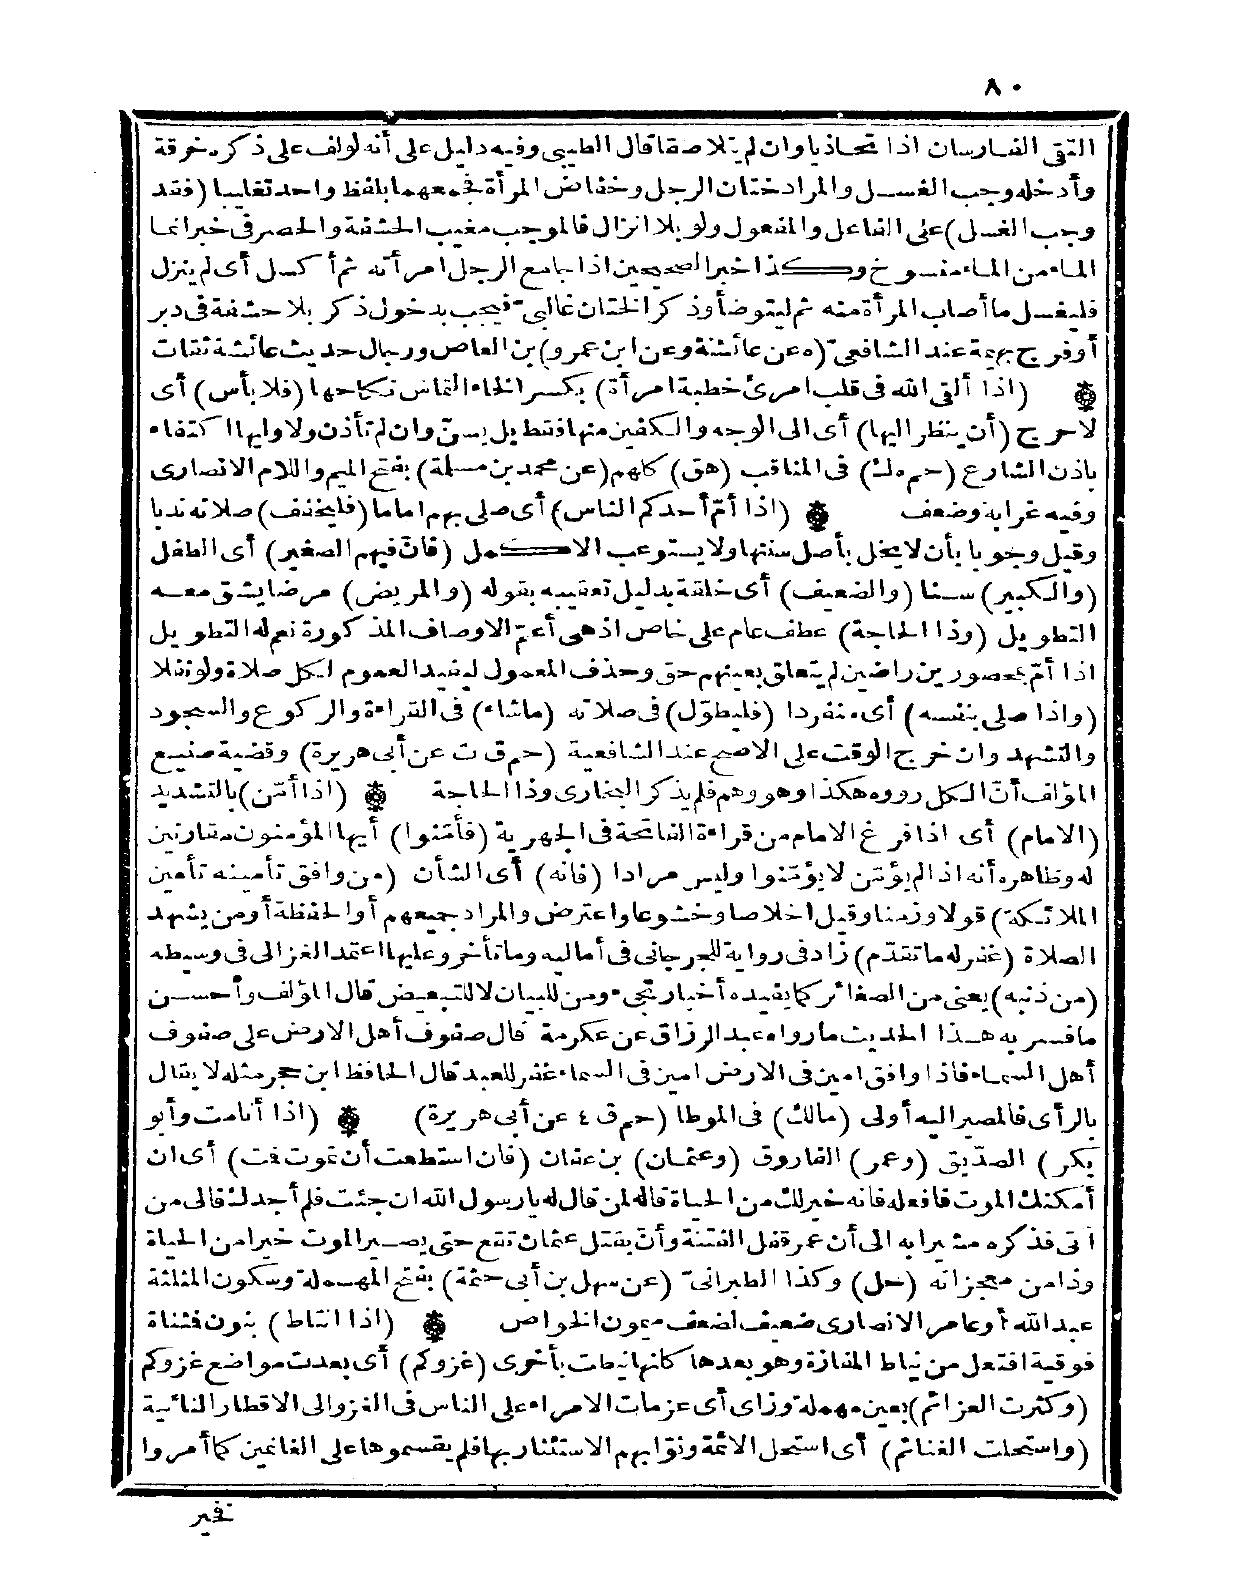 ٨٠
التقى الفارسان اذا تحاذيا وان لم يتلاصقا قال الطيبى وفيه دليل على أنه لو لف على ذكره خرقة
وأدخله وجب الغسل والمراد ختان الرجل وخفاض المرأة فجمعهما بلفظ واحد تغليبا (فقد
وجب الغسل) على الفاعل والمفعول ولو بلا انزال فالموجب مغيب الحشفة والحصر فى خبر انما
الماء من الماء منسوخ وكذا خبر الصحيحين اذا جامع الرجل امرأته ثم أكسل أى لم ينزل
فليغسل ما أصاب المرأة منه ثم ليتوضأ وذكر الختان غالبىّ فيجب بدخول ذكر بلا حشفة فى دبر
أو فرج بهيمة عند الشافعىّ (ه عن عائشة وعن ابن عمرو) بن العاص ورجال حديث عائشة ثقات
(اذا ألقى الله فى قلب امرئ خطبة امرأة) بكسر الخاء التماس نكاحها (فلا بأس) أى
لا حرج (أن ينظر اليها) أى الى الوجه والكفين منها فقط بل يسنّ وان لم تأذن ولا وليها اكتفاء
باذن الشارع (حم ه ك) فى المناقب (هق) كلهم (عن محمد بن مسلمة) بفتح الميم واللام الانصارى
وفيه غرابة وضعف (اذا أمّ أحدكم الناس) أى صلى بهم اماما (فليخفف) صلاته ندبا
وقيل وجوبا بأن لا يخل بأصل سنتها ولا يستوعب الاكمل (فانّ فيهم الصغير) أى الطفل
(والكبير) سنا (والضعيف) أى خلقة بدليل تعقيبه بقوله (والمريض) مرضا يشق معه
التطويل (وذا الحاجة) عطف عام على خاص اذ هى أعمّ الاوصاف المذكورة نعم له التطويل
اذا أمّ بمحصورين راضين لم يتعلق بعينهم حق وحذف المعمول ليفيد العموم لكل صلاة ولو نفلا
(واذا صلى بنفسه) أى منفردا (فليطوّل) فى صلاته (ماشاء) فى القراءة والركوع والسجود
والتشهد وان خرج الوقت على الاصح عند الشافعية (حم ق ت عن أبى هريرة) وقضية صنيع
المؤلف أنّ الكل رووه هكذا وهو وهم فلم يذكر البخارى وذا الحاجة (اذا أمّن) بالتشديد
(الامام) أى اذا فرغ الامام من قراءة الفاتحة فى الجهرية (فأمّنوا) أيها المؤمنون مقارنين
له وظاهره أنه اذا لم يؤمّن لا يؤمّنوا وليس مرادا (فانه) أى الشأن (من وافق تأمينه تأمين
الملائكة) قولا وزمنا وقيل اخلاصا وخشوعا واعترض والمراد جميعهم أو الحفظة أو من يشهد
الصلاة (غفر له ما تقدّم) زاد فى رواية للجرجانى فى أماليه وما تأخر وعليها اعتمد الغزالى فى وسيطه
(من ذنبه) يعنى من الصغائر كما يفيده أخبار تجىء ومن للبيان لا للتبعيض قال المؤلف وأحسن
مافسر به هذا الحديث مارواه عبد الرزاق عن عكرمة قال صفوف أهل الارض على صفوف
أهل السماء فاذا وافق امين فى الارض امين فى السماء غفر للعبد قال الحافظ ابن حجر مثله لا يقال
بالرأى فالمصير اليه أولى (مالك) فى الموطا (حم ق ٤ عن أبى هريرة) (اذا أنا مت وأبو
بكر) الصدّيق (وعمر) الفاروق (وعثمان) بن عفان (فان استطعت أن تموت فمت) أى ان
أمكنك الموت فافعله فانه خير لك من الحياة قاله لمن قال له يا رسول الله ان جئت فلم أجدك فالى من
اتى فذكره مشيرا به الى أن عمر قفل الفتنة وأن بقتل عثمان تقع حتى يصير الموت خيرا من الحياة
وذا من معجزاته (حل) وكذا الطبرانىّ (عن سهل بن أبى حثمة) بفتح المهملة وسكون المثلثة
عبد الله أو عامر الانصارى ضعيف لضعف ميمون الخواص (اذا انتاط) بنون فمثناة
فوقية افتعل من نياط المفازة وهو بعدها كأنها نيطت بأخرى (غزوكم) أى بعدت مواضع غزوكم
(وكثرت العزائم) بعين مهملة وزاى أى عزمات الامراء على الناس فى الغزو الى الاقطار النائية
(واستحلت الغنائم) أى استحل الائمة ونوّابهم الاستئثار بها فلم يقسموها على الغانمين كما أمروا
فخير